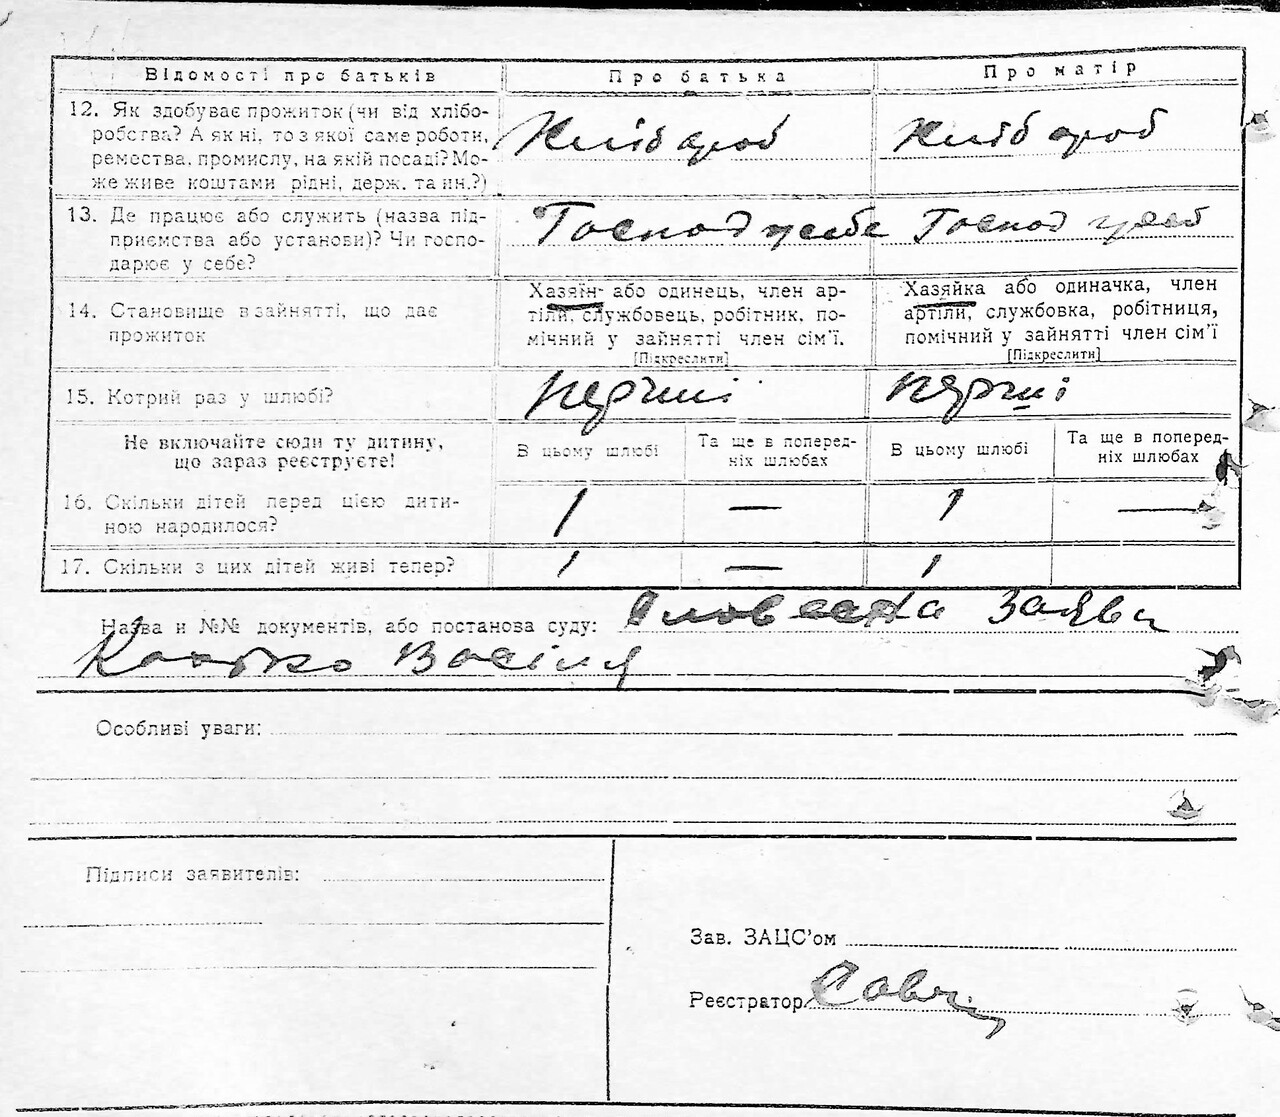 Відомості про батьків
Про батька
Про матір
12. Як здобуває прожиток (чи від хлібо-
робства? А як ні, то з якої саме роботи,
ремества, промислу, на якій посаді? Мо-
же живе коштами рідні, держ. та ин.?)
Хліб ароб
Хліб ароб
13. Де працює або служить (назва під-
приємства або установи)? Чи госпо-
дарює у себе?
Господ усебе
Господ усеб
14. Становище в зайнятті, що дає
прожиток
Хазяїн або одинець, член ар-
тіли, службовець, робітник, по-
мічний у зайнятті член сім'ї.
[Підкреслити]
Хазяйка або одиначка, член
артіли, службовка, робітниця,
помічний у зайнятті член сім'ї
[Підкреслити]
15. Котрий раз у шлюбі?
перший
перший
Не включайте сюди ту дитину,
що зараз реєструєте!
В цьому шлюбі
Та ще в поперед-
ніх шлюбах
В цьому шлюбі
Та ще в поперед-
ніх шлюбах
16. Скільки дітей перед цією дити-
ною народилося?
1 — 1 —
17. Скільки з цих дітей живі тепер?
1 — 1
Назва и №№ документів, або постанова суду: Словесна Заява
Особливі уваги:
Підписи заявителів:
Зав. ЗАЦС'ом
Реєстратор